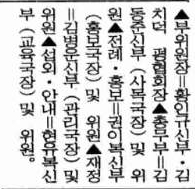 ▲부위원장=황인규신부·김
치덕 평협회장▲총무부=김
동준신부(사목국장) 및 위
원▲전례·홍보=권이복신부
(홍보국장) 및 위원▲재정
=김병운신부(관리국장) 및
위원▲섭외·안내=현유복신
부(교육국장) 및 위원.